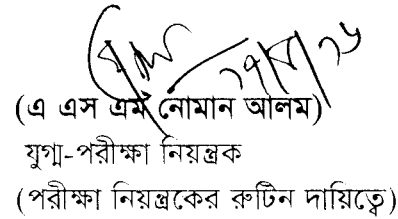 (এ এস এম নোমান আলম)
যুগ্ম-পরীক্ষা নিয়ন্ত্রক
(পরীক্ষা নিয়ন্ত্রকের রুটিন দায়িত্বে)